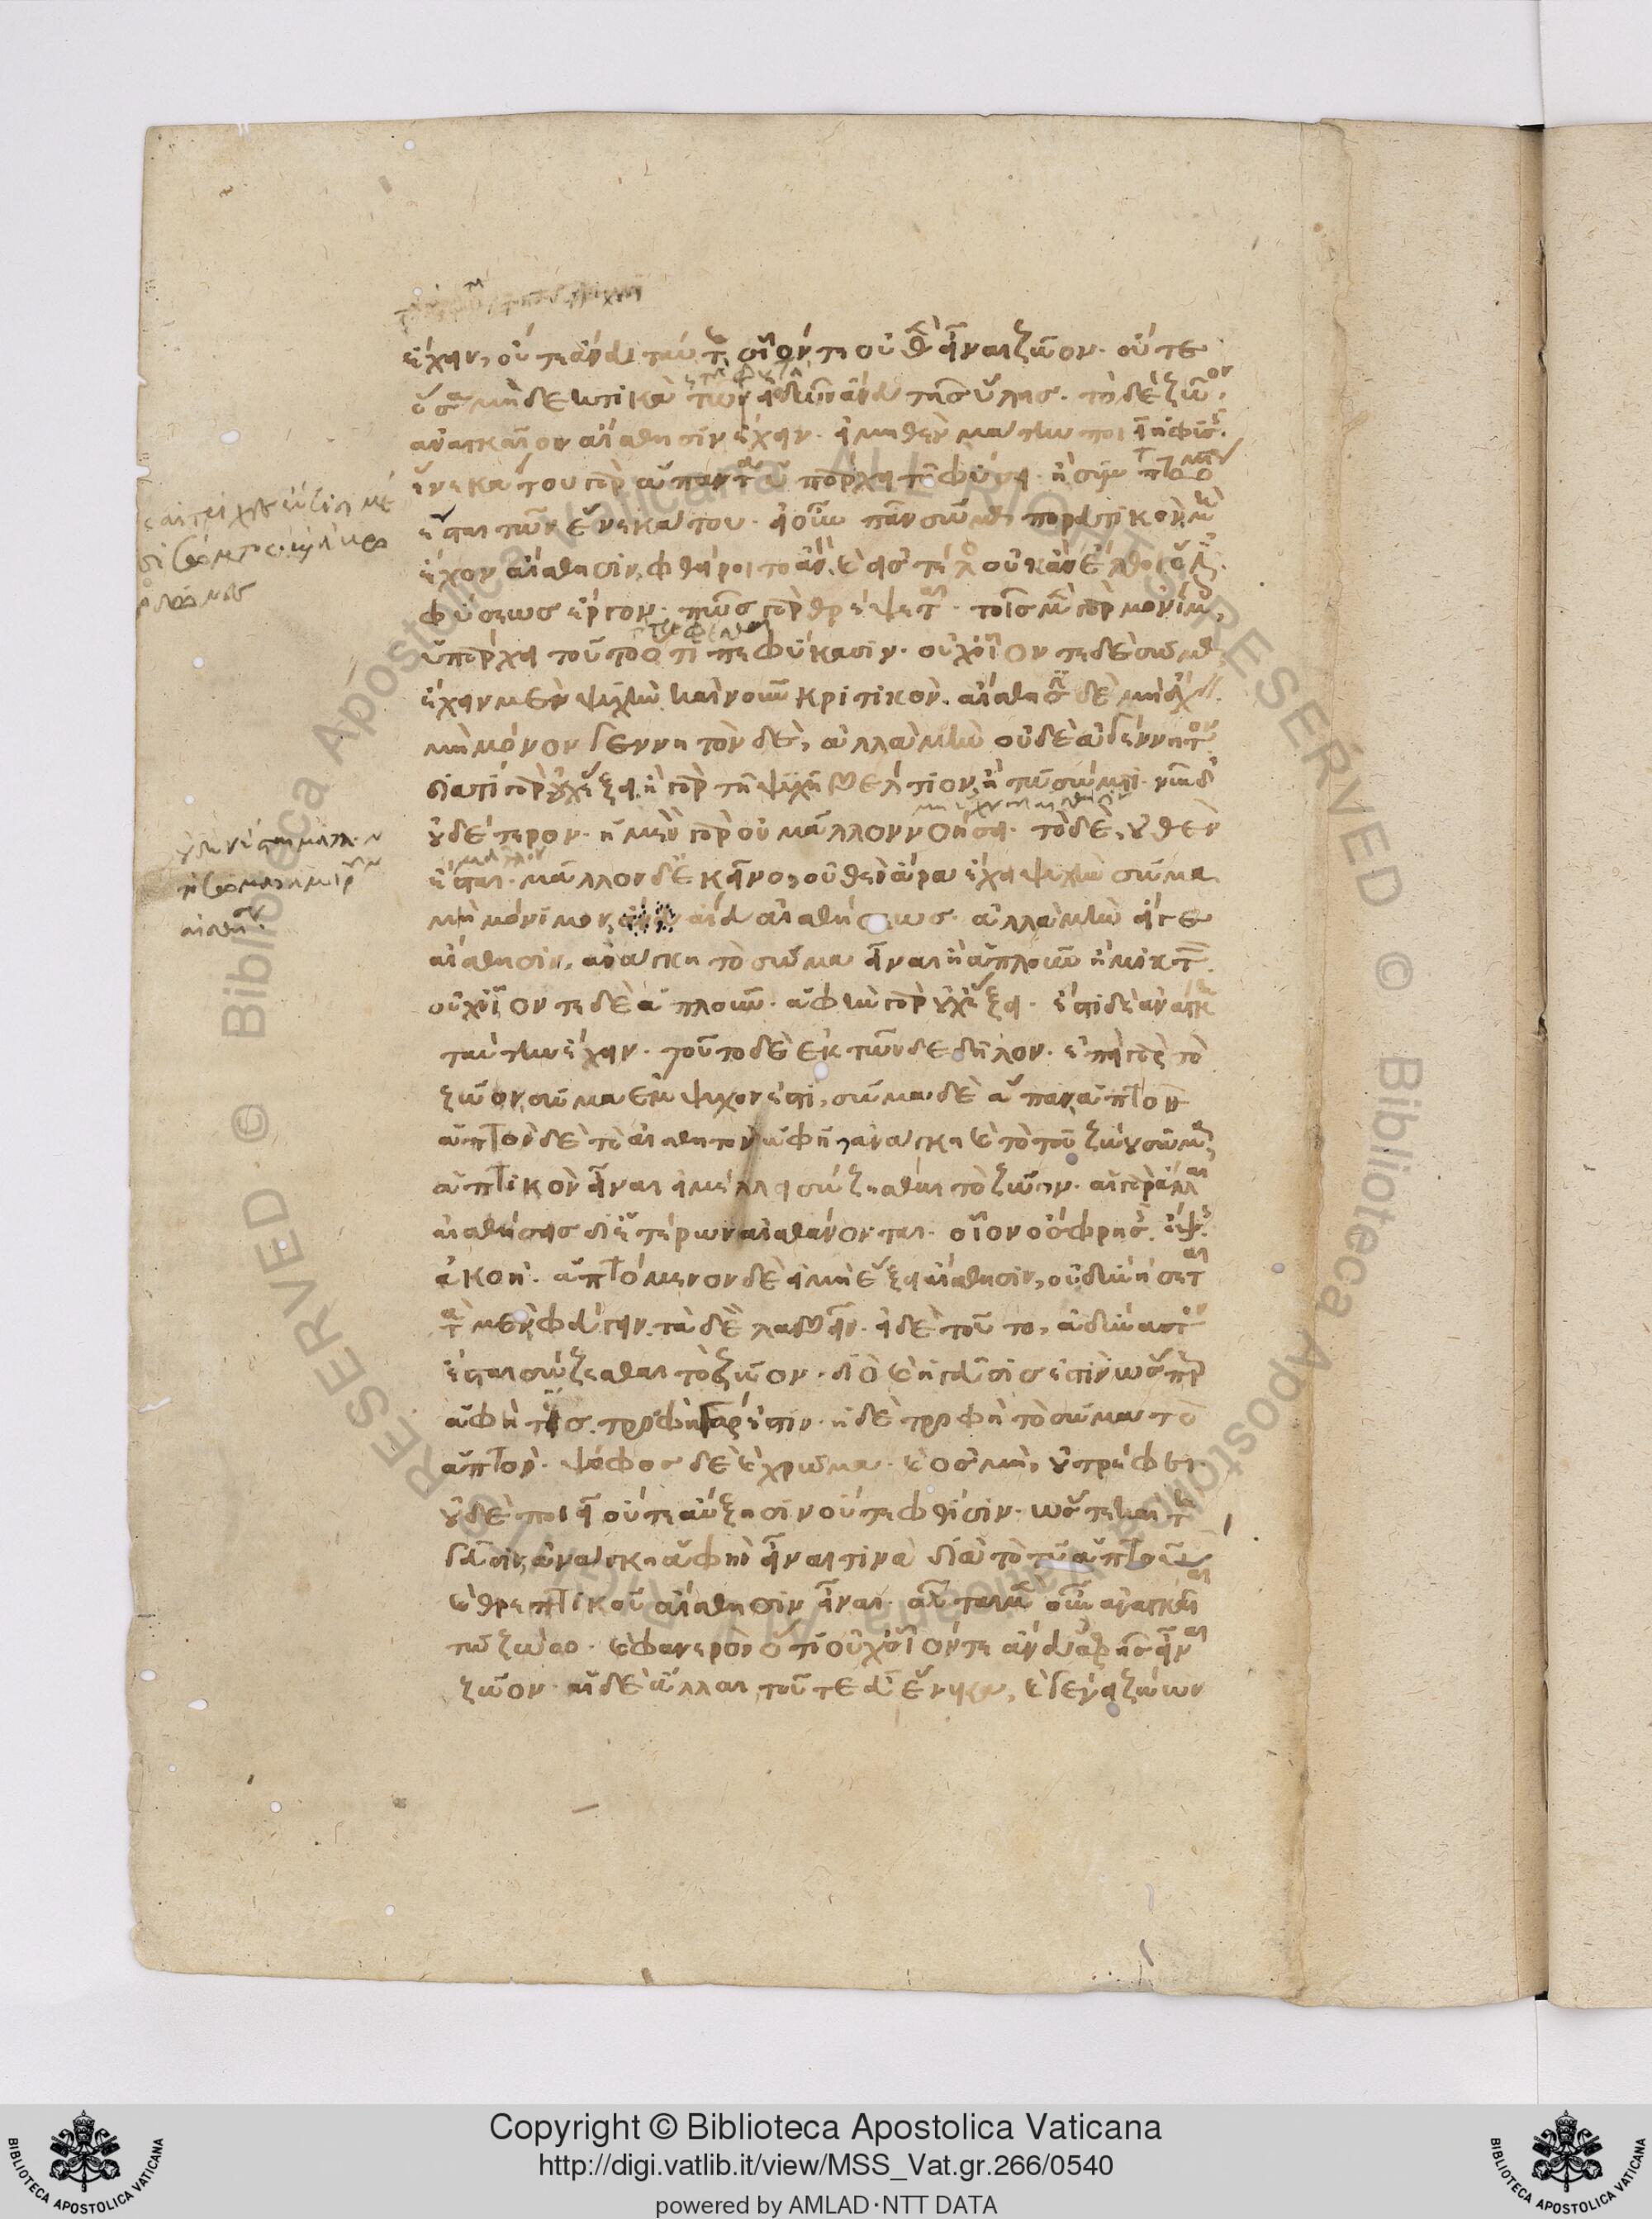 ἔχειν, οὔτε ἄνευ ταύτης οἷόν τε οὐθὲν εἶναι ζῷον. οὔτε
ὅσα μὴ δεκτικὰ τῶν εἰδῶν ἄνευ τῆς ὕλης. τὸ δὲ ζῷον
ἀναγκαῖον αἴσθησιν ἔχειν. εἰ μηθὲν μάτην ποιεῖ ἡ φύσις.
ἕνεκά του γὰρ ἅπαντα ὑπάρχει τῇ φύσει. ἢ συμπτώματα
ἔσται τῶν ἕνεκά του. εἰ οὖν πᾶν σῶμα πορευτικὸν μὴ
ἔχον αἴσθησιν, φθείροιτο ἂν καὶ εἰς τέλος οὐκ ἂν ἔλθοι ὅ ἐστι
φύσεως ἔργον. πῶς γὰρ θρέψεται. τοῖς μὲν γὰρ μονίμοις
ὑπάρχει τοῦτο ὅτι πεφύκασιν. οὐχ οἷόν τε δὲ σῶμα
ἔχειν μὲν ψυχὴν καὶ νοῦν κριτικὸν. αἴσθησιν δὲ μὴ ἔχειν
μὴ μόνιμον γεννητὸν δὲ, ἀλλὰ μὴν οὐδὲ ἀγέννητον
διατί γὰρ οὐχ ἕξει ἢ γὰρ τῇ ψυχῇ βέλτιον ἢ τῷ σώματι. νῦν δ'
οὐδέτερον. ἡ μὲν γὰρ οὐ μᾶλλον νοήσει. τὸ δὲ, οὐθὲν
ἔσται μᾶλλον δι' ἐκεῖνο, οὐθὲν ἄρα ἔχει ψυχὴν σῶμα
μὴ μόνιμον, ἄνευ αἰσθήσεως. ἀλλὰ μὴν εἴγε
αἴσθησιν, ἀνάγκη τὸ σῶμα εἶναι ἢ ἁπλοῦν ἢ μικτόν.
οὐχ οἷόν τε δὲ ἁπλοῦν. ἁφὴν γὰρ οὐχ ἕξει. ἔστι δὲ ἀνάγκη
ταύτην ἔχειν. τοῦτο δὲ ἐκ τῶνδε δῆλον. ἐπεὶ γὰρ τὸ
ζῷον, σῶμα ἔμψυχόν ἐστι, σῶμα δὲ ἅπαν ἁπτὸν
ἁπτὸν δὲ τὸ αἰσθητὸν ἁφῇ, ἀνάγκη καὶ τὸ τοῦ ζῴου σῶμα
ἁπτικὸν εἶναι εἰ μέλλει σώζεσθαι τὸ ζῷον. αἱ γὰρ ἄλλαι
αἰσθήσεις δι' ἑτέρων αἰσθάνονται. οἷον ὄσφρησις. ὄψις.
ἀκοή. ἁπτόμενον δὲ εἰ μὴ ἕξει αἴσθησιν, οὐ δυνήσεται
τὰ μὲν φεύγειν. τὰ δὲ λαβεῖν. εἰ δὲ τοῦτο, ἀδύνατον
ἔσται σώζεσθαι τὸ ζῷον. διὸ καὶ ἡ γεῦσίς ἐστιν ὥσπερ
ἁφή τις. τροφῆς γάρ ἐστιν. ἡ δὲ τροφὴ τὸ σῶμα τὸ
ἁπτόν. ψόφος δὲ καὶ χρῶμα. καὶ ὀσμὴ, οὐ τρέφει.
οὐδὲ ποιεῖ οὔτε αὔξησιν οὔτε φθίσιν. ὥστε καὶ τὴν
γεῦσιν, ἀνάγκη ἁφὴν εἶναί τινα διὰ τὸ τοῦ ἁπτοῦ
καὶ θρεπτικοῦ αἴσθησιν εἶναι. αὗται μὲν οὖν ἀναγκαῖαι
τῷ ζῴῳ. καὶ φανερὸν ὅτι οὐχ οἷόν τε ἄνευ ἁφῆς εἶναι
ζῷον. αἱ δὲ ἄλλαι, τοῦ τε εὖ ἕνεκα, καὶ γένει ζῴων
Copyright © Biblioteca Apostolica Vaticana
http://digi.vatlib.it/view/MSS_Vat.gr.266/0540
powered by AMLAD·NTT DATA